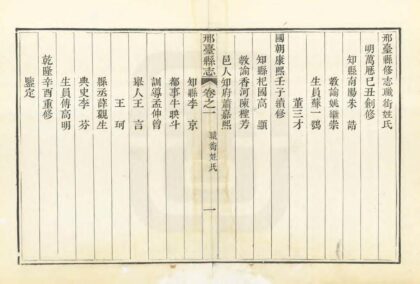 邢臺縣修志職銜姓氏
明萬厯己丑創修
知縣南陽朱誥
教諭姚繼崇
生員蘇一鶚
董三才
國朝康熙壬子續修
知縣杞國高顯
教諭香河陳檉芳
邑人知府蕭嘉熙
邢臺縣志 卷之一 職銜姓氏 一
知縣李京
都事牛聯斗
訓導孟仲曾
舉人王言
王珂
縣丞薛觀生
典史李芬
生員傅高明
乾隆辛酉重修
鑒定